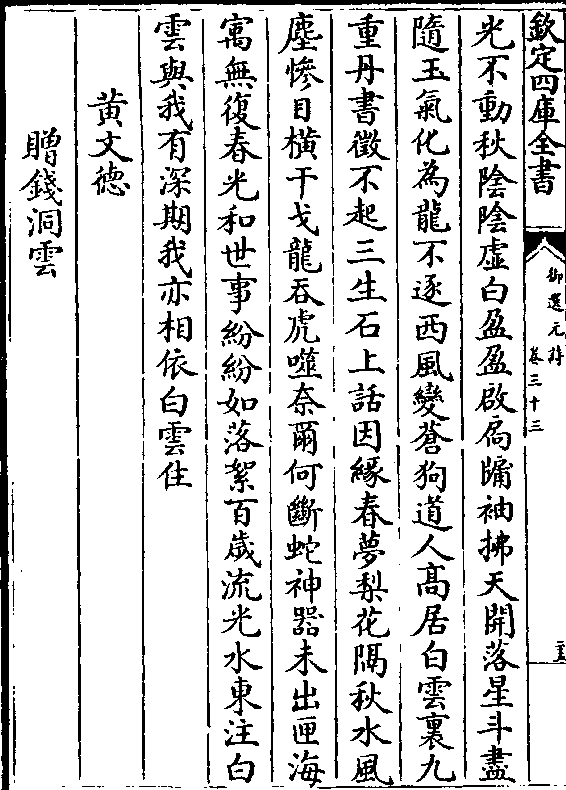 欽定四庫全書
御選元詩
卷三十三
光不動秋陰陰虛白盈盈啟扄牗袖拂天開落星斗盡
隨玉氣化為龍不逐西風變蒼狗道人髙居白雲裏九
重丹書徵不起三生石上話因緣春夢梨花隔秋水風
塵慘目橫干戈龍吞虎噬奈爾何斷蛇神器未出匣海
㝢無復春光和世事紛紛如落絮百歲流光水東注白
雲與我有深期我亦相依白雲住
黄文德
贈錢洞雲